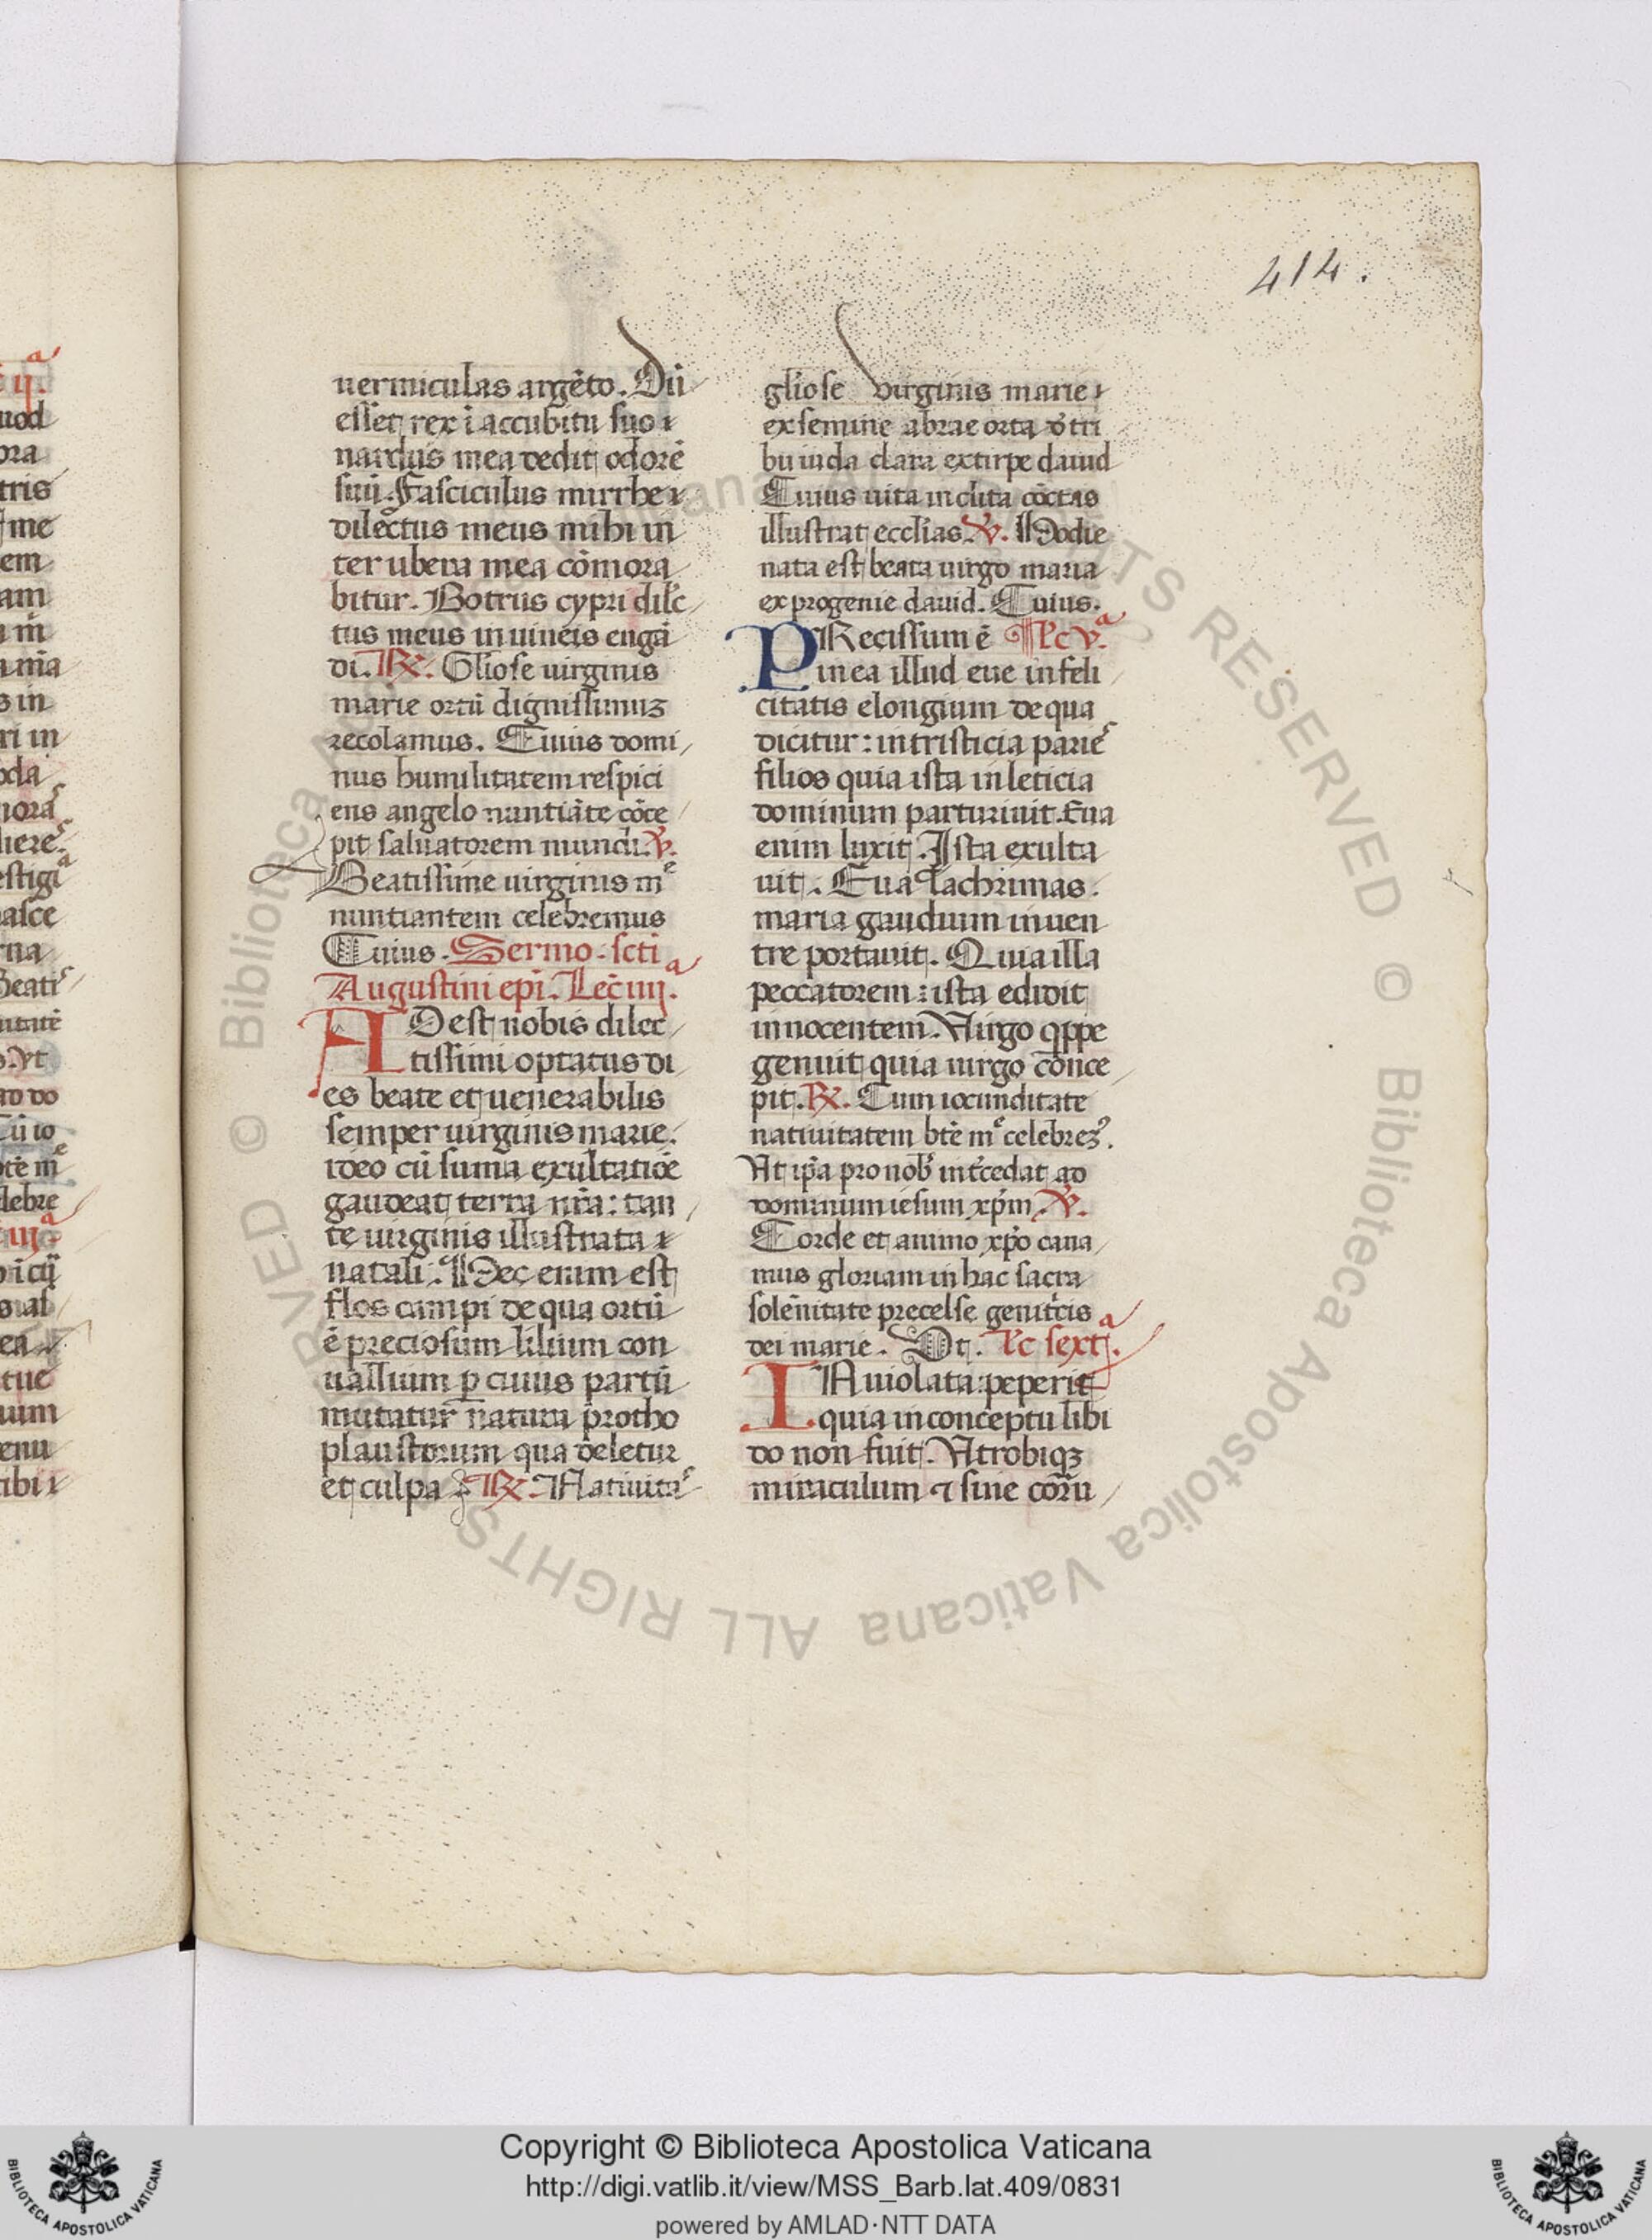 414.
uermiculas argēto. Dū
esset rex ī accubitu suo ⁊
nardus mea dedit odorē
suū. Fasciculus mirrhe ⁊
dilectus meus mihi in
ter ubera mea cōmora
bitur. Botrus cypri dilc
tus meus in uineis engā
di. ℟. Gliose uirginis
marie ortū dignissimuz
recolamus. Cuius domi
nus humilitatem respici
ens angelo nuntiāte cōce
pit saluatorem mundi. ℣.
Beatissime uirginis mᵉ
nuntiantem celebremus
Cuius. Sermo. scti
Augustini epi. Lec iiijᵃ.
ADest nobis dilec
tissimi optatus di
es beate et uenerabilis
semper uirginis marie.
ideo cū suma exultatiōe
gaudeat terra nr̄a: tan
te uirginis illustrata ⁊
natali. Hec enim est
flos campi de qua ortū
ē preciosum lilium con
uallium p̲ cuius partū
mutatur natura protho
plaustorum qua deletur
et culpa ℟. Natiuita
gliose virginis marie ⁊
ex semine abrae orta dˀ tri
bu iuda clara ex tirpe dauid
Cuius uita inclita cōctas
illustrat ecclias ℣. Hodie
nata est beata uirgo maria
ex progenie dauid. Cuius.
PRecissum ē Lc vᵃ.
in ea illud eue infeli
citatis elongium de qua
dicitur: in tristicia parieˢ
filios quia ista in leticia
dominum parturiuit. Eua
enim luxit. Ista exulta
uit. Eua lachrimas.
maria gaudium in uen
tre portauit. Quia illa
peccatorem: ista edidit
innocentem. Virgo q̲ppe
genuit quia uirgo conce
pit. ℟. Cum iocunditate
natiuitatem btē mᵉ celebrez.
Vt ip̄a pro nob int̄cedat ad
dominum iesum xp̄m. ℣.
Corde et animo xp̄o cana
mus gloriam in hac sacra
solēnitate precelse genitͥcis
dei marie. Vt. Lc sextᵃ.
INuiolata: peperit
quia in conceptu libi
do non fuit. Vtrobiqꝫ
miraculum ⁊ sine cor̄u
© Biblioteca Apostolica Vaticana ALL RIGHTS RESERVED
Copyright © Biblioteca Apostolica Vaticana
http://digi.vatlib.it/view/MSS_Barb.lat.409/0831
powered by AMLAD·NTT DATA
BIBLIOTECA APOSTOLICA VATICANA
BIBLIOTECA APOSTOLICA VATICANA